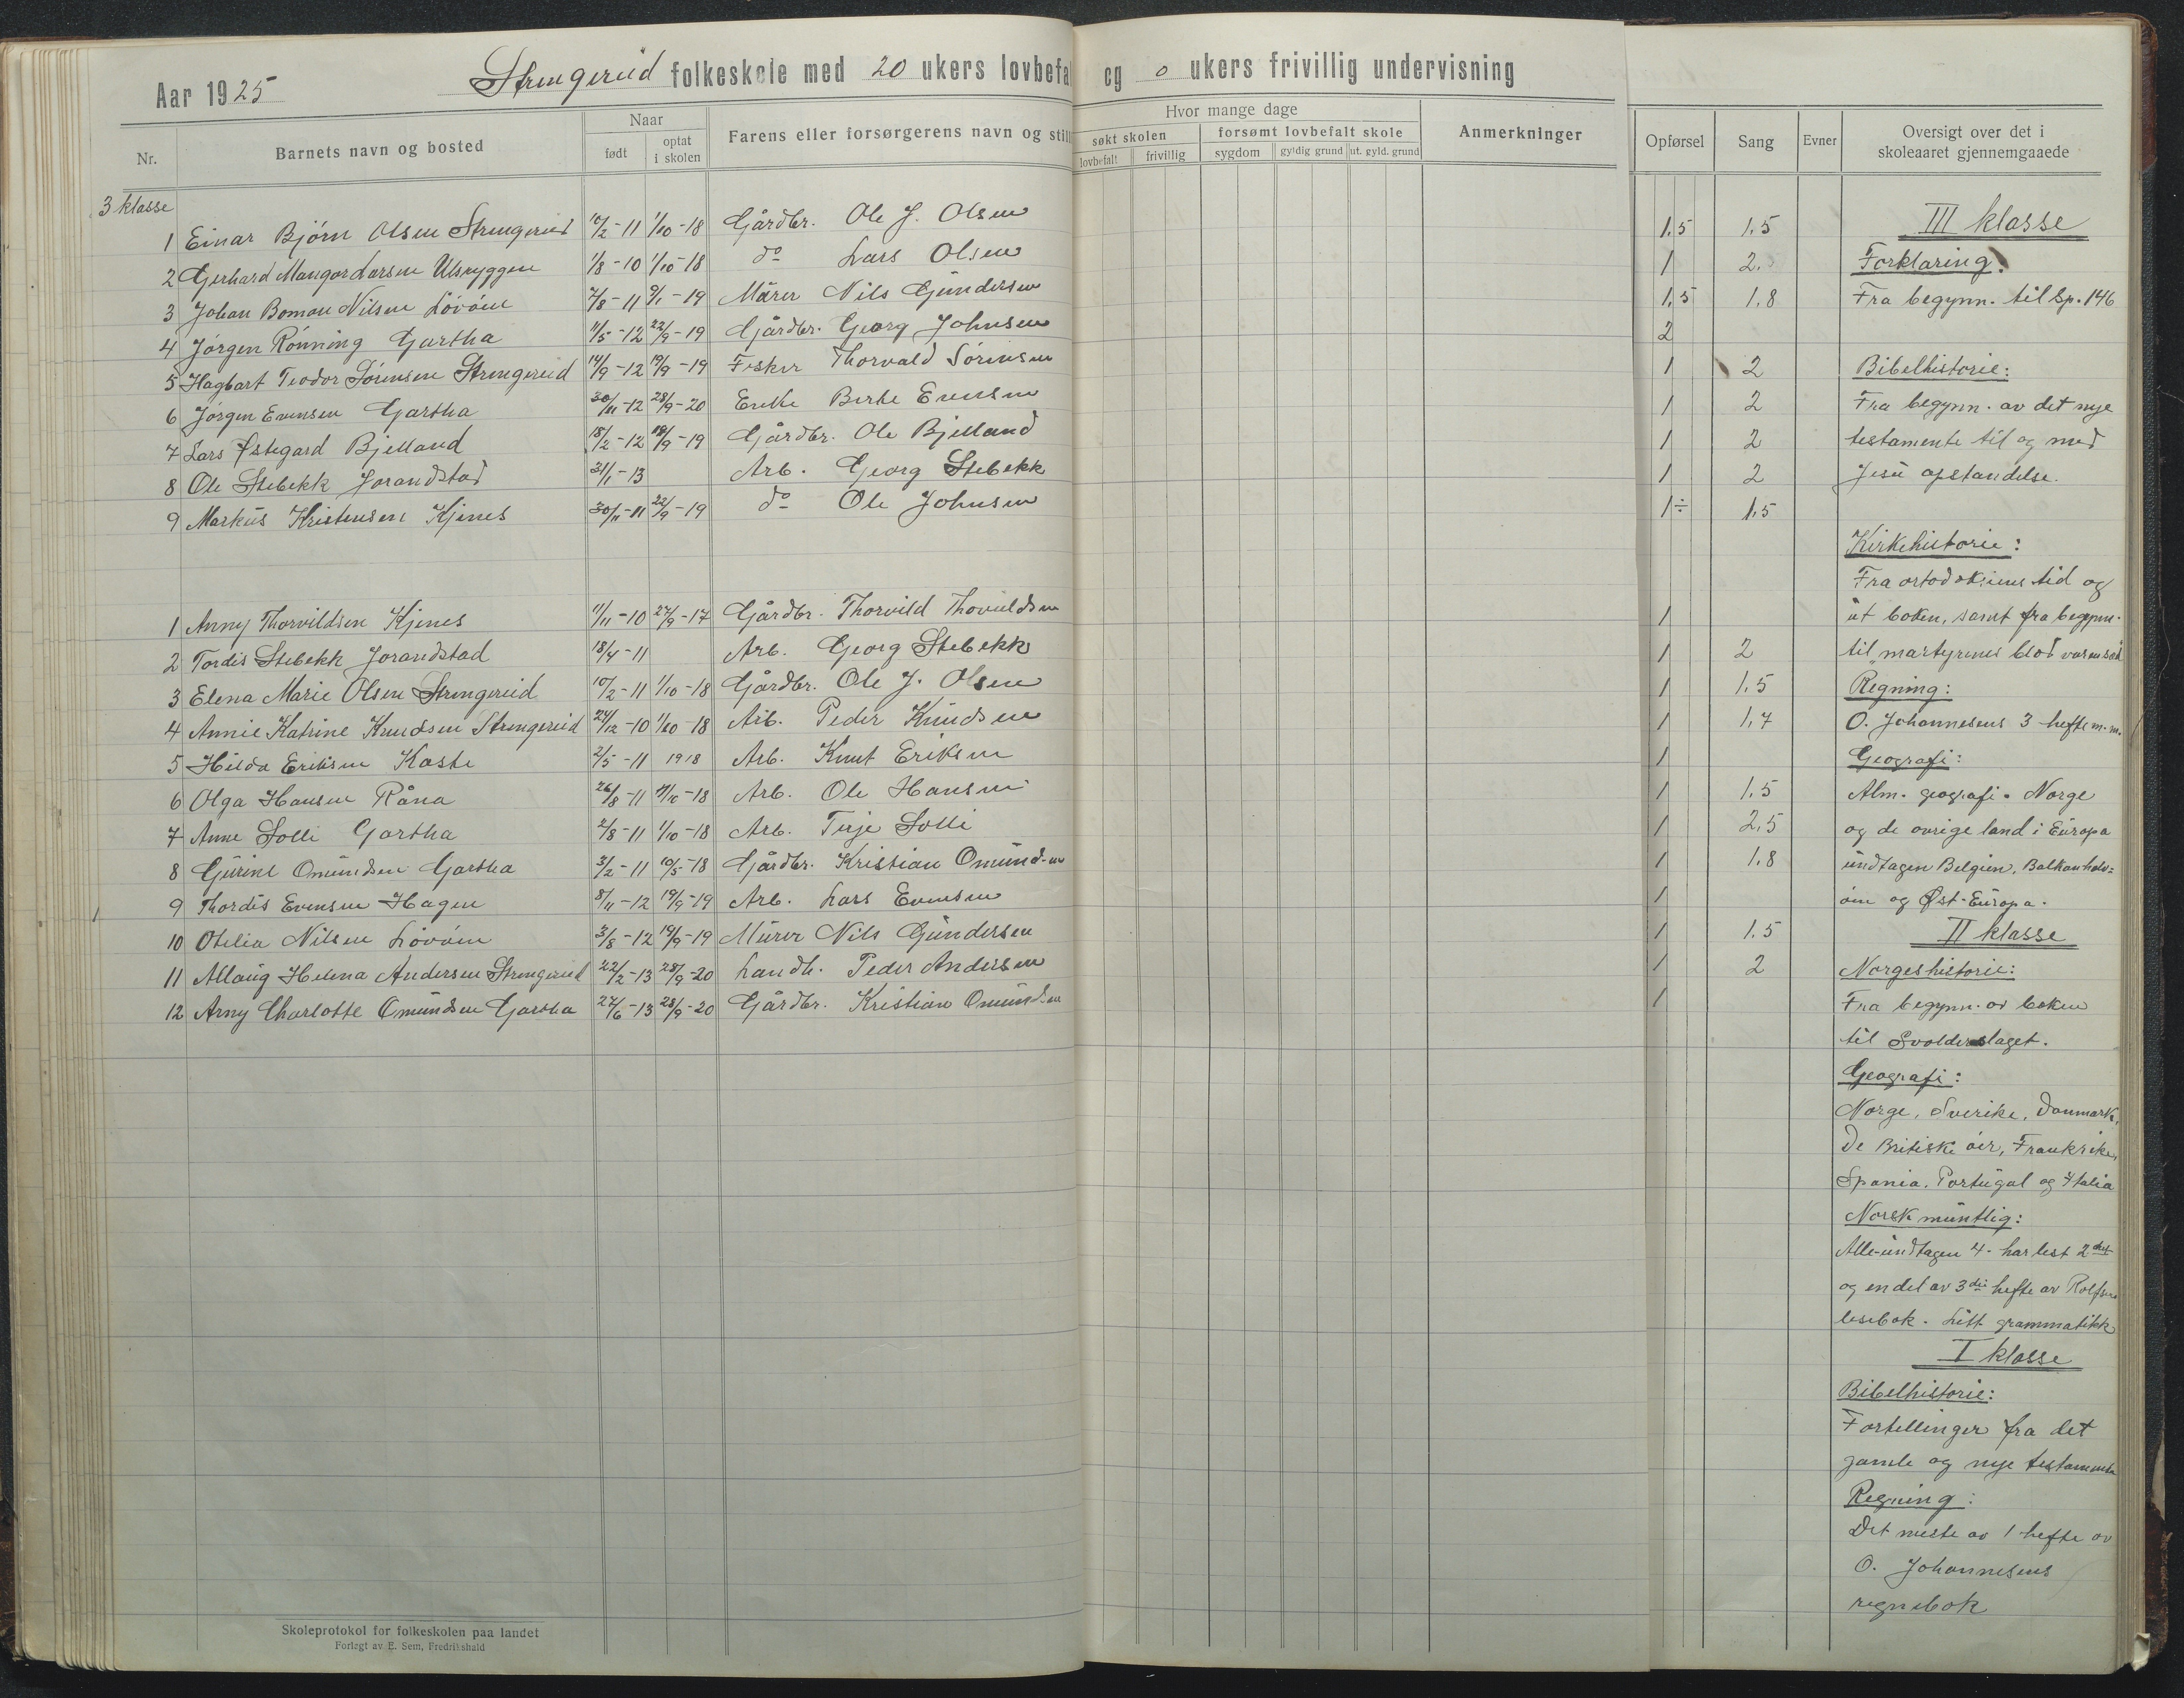 Aar 1925 Strengereid folkeskole med 20 ukers lovbefa og 0 ukers frivillig undervisning
Nr. Barnets navn og bosted Naar født optat i skolen Farens eller forsørgerens navn og still
Hvor mange dage
søkt skolen forsømt lovbefalt skole Anmerkninger
lovbefalt frivillig sygdom gyldig grund ut. gyld. grund
3 klasse
1 Einar Bjørn Olsen Strengereid 10/2-11 1/10-18 Gårdbr. Ole J. Olsen
2 Gerhard Mangor Larsen Ulsryggen 1/8-10 1/10-18 do Lars Olsen
3 Johan Boman Nilsen Løvöen 7/8-11 9/1-19 Mürer Nils Gündersen
4 Jørgen Rønning Gartha 11/5-12 22/9-19 Gjårdbr. Georg Johnsen
5 Hagbart Teodor Sørensen Strengereid 14/9-12 19/9-19 Fisker Thorvald Sörensen
6 Jørgen Evensen Gartha 30/11-12 28/9-20 Enke Berte Evensen
7 Lars Østegard Bjelland 18/2-12 19/9-19 Gjårdbr. Ole Bjelland
8 Ole Stebekk Jorandstad 31/1-13 Arb. Georg Stebekk
9 Markus Kristensen Kjenes 30/11-11 22/9-19 do Ole Johnsen
1 Anny Thorvildsen Kjenes 11/11-10 27/9-17 Gårdbr. Thorvild Thorvildsen
2 Tordis Stebekk Jorandstad 18/4-11 Arb. Georg Stebekk
3 Elena Marie Olsen Strengereid 10/2-11 1/10-18 Gårdbr. Ole J. Olsen
4 Annie Katrine Knudsen Strengereid 24/12-10 1/10-18 Arb. Peder Knüdsen
5 Hilda Eriksen Kaste 2/5-11 1918 Arb. Knut Eriksen
6 Olga Hansen Råna 26/8-11 /10-18 Arb. Ole Hansen
7 Anne Solli Gartha 2/8-11 1/10-18 Arb. Terje Solli
8 Gürine Omündsen Gartha 3/2-11 10/5-18 Gårdbr. Kristian Omündsen
9 Thordis Evensen Hagen 8/11-12 19/9-19 Arb. Lars Evensen
10 Otelia Nilsen Løvöen 3/8-12 19/9-19 Mürer Nils Gündersen
11 Allaug Helena Andersen Strengereid 22/2-13 28/9-20 Landh. Peder Andersen
12 Arny Charlotte Omündsen Gartha 27/6-13 28/9-20 Gårdbr. Kristian Omündsen
Skoleprotokol for folkeskolen paa landet
Forlegt av E. Sem, Fredrikshald
Opførsel Sang Evner Oversigt over det i skoleaaret gjennemgaaede
1,5 1,5
1 2.
1,5 1,8
2
1 2
1 2
1 2
1 2
1÷ 1,5
1
1 2
1 1,5
1 1,7
1
1 1,5
1 2,5
1 1,8
1
1 1,5
1 2
1
III klasse
Forklaring.
Fra begynn. til Sp. 146
Bibelhistorie:
Fra begynn. av det nye
testamente til og med
Jesü opstandelse.
Kirkehistorie:
Fra ortodoksiens tid og
üt boken, samt fra begynn.
til "martyrenes blod var en sæd
Regning:
O. Johannesens 3 hefte m.m.
Geografi:
Alm. geografi. Norge
og de øvrige land i Eüropa
ündtagen Belgien, Balkanhalv-
öen og Øst-Eüropa.
II klasse
Norgeshistorie:
Fra begynn. av boken
til Svolderslaget.
Geografi:
Norge, Sverike, Danmark,
De Britiske öer, Frankrike,
Spania, Portügal og Italia
Norsk müntlig:
Alle ündtagen 4. har lest 2det
og en del av 3die hefte av Rolfsens
lesebok. Litt grammatikk
I klasse
Bibelhistorie:
Fortellinger fra det
gamle og nye testamente
Regning:
Det meste av 1 hefte av
O. Johannesens
regnebok